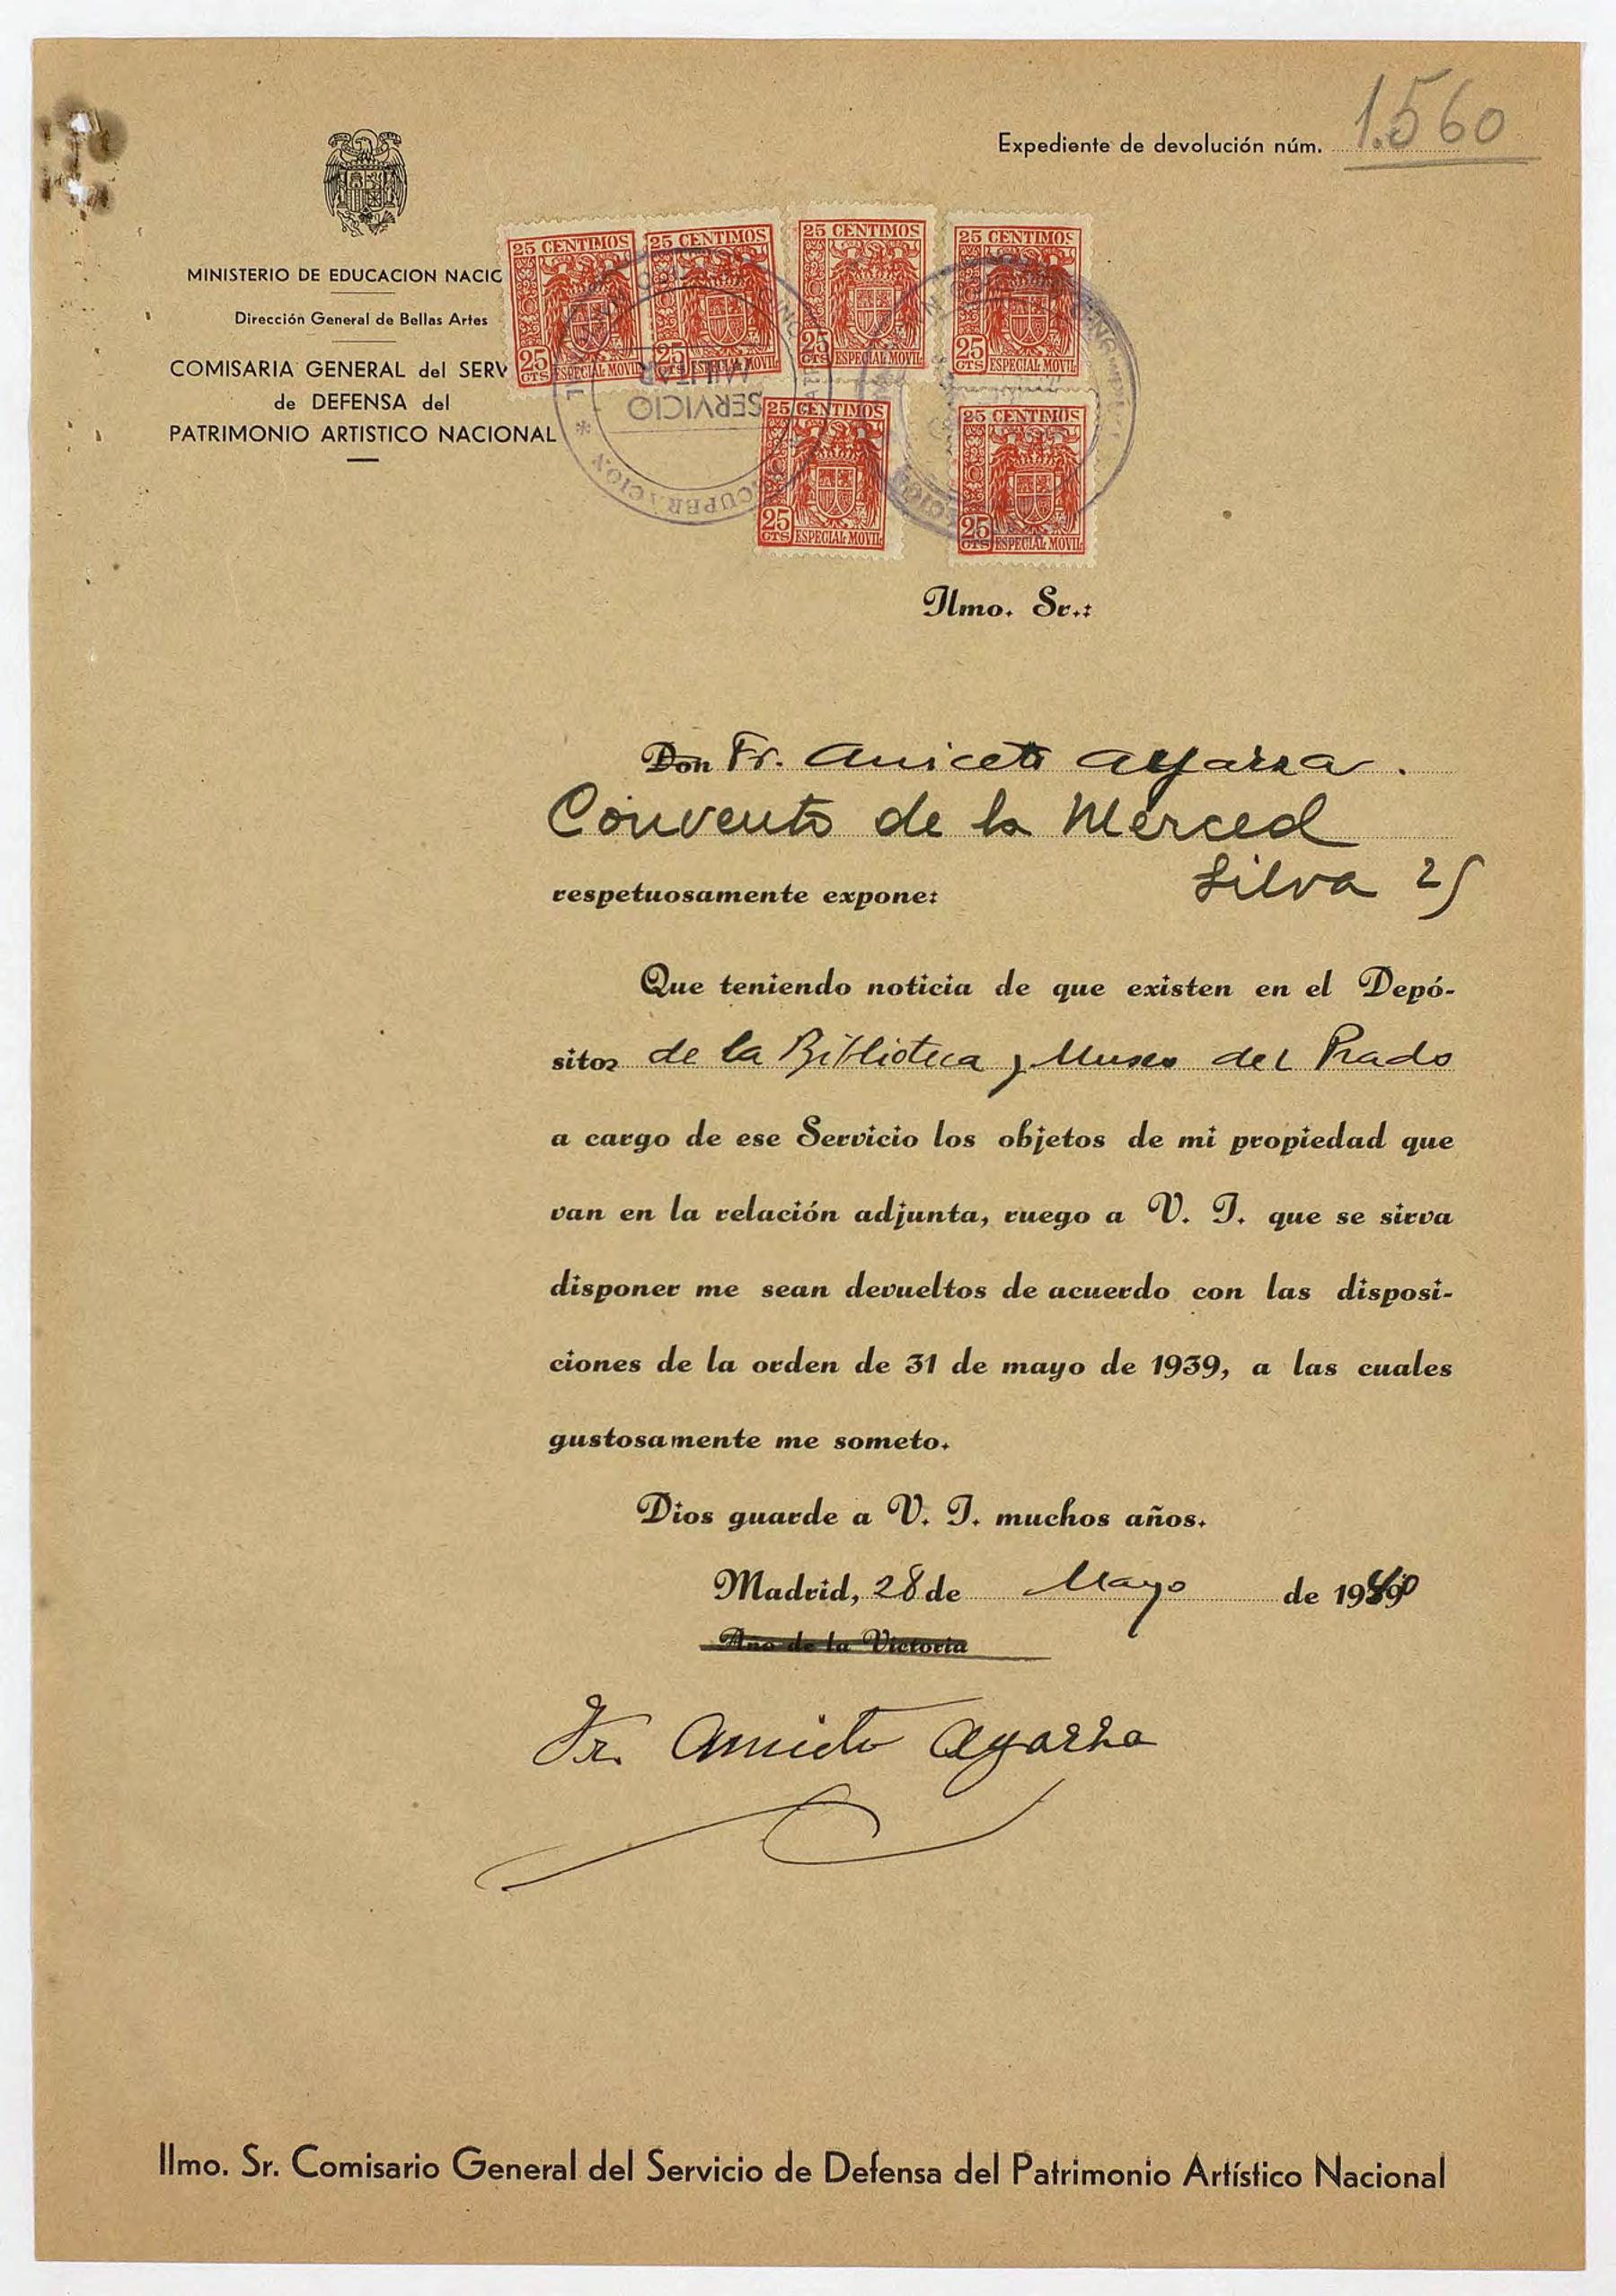 Expediente de devolución núm. 1.560
MINISTERIO DE EDUCACION NACIO
Dirección General de Bellas Artes
COMISARIA GENERAL del SERV
de DEFENSA del
PATRIMONIO ARTISTICO NACIONAL
25 CENTIMOS 25 CENTIMOS 25 CENTIMOS 25 CENTIMOS
25 CTS ESPECIAL MOVIL 25 CTS ESPECIAL MOVIL 25 CTS ESPECIAL MOVIL 25 CTS ESPECIAL MOVIL
SERVICIO
MILITAR
25 CENTIMOS 25 CENTIMOS
25 CTS ESPECIAL MOVIL 25 CTS ESPECIAL MOVIL
Ilmo. Sr.:
Don Fr. Aniceto Ayarra.
Convento de la Merced
Silva 25
respetuosamente expone:
Que teniendo noticia de que existen en el Depó-
sitos de la Biblioteca y Museo del Prado
a cargo de ese Servicio los objetos de mi propiedad que
van en la relación adjunta, ruego a V. I. que se sirva
disponer me sean devueltos de acuerdo con las disposi-
ciones de la orden de 31 de mayo de 1939, a las cuales
gustosamente me someto.
Dios guarde a V. I. muchos años.
Madrid, 28 de Mayo de 1940
Año de la Victoria
Fr. Aniceto Ayarra
Ilmo. Sr. Comisario General del Servicio de Defensa del Patrimonio Artístico Nacional